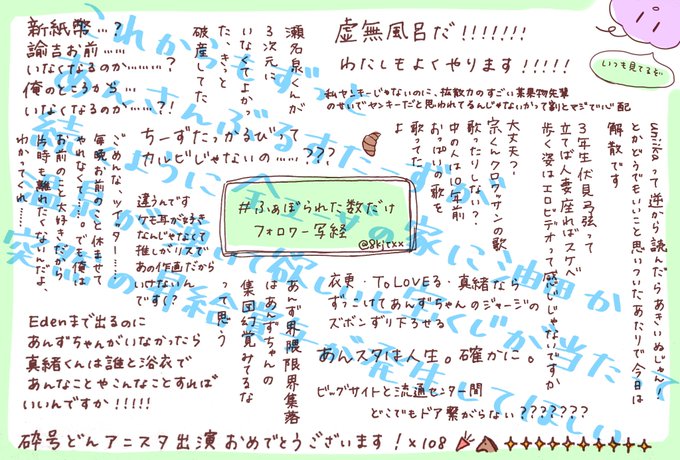 新紙幣…?
諭吉お前……
いなくなるのか………?
俺のところから…
いなくなるのか……?!
瀬名泉くんが
3次元に
いなくてよかっ
た、きっと
破産してた
虚無風呂だ!!!!!!!
わたしもよくやります!!!!!
私ヤンキーじゃないのに、拡散力のすごい某果物先輩
のせいでヤンキーだと思われてるんじゃないかって割とマジで心配
いつも見てるぞ
uniikaって逆から読んだらあきいぬじゃん!
とかどうでもいいこと思いついたあたりで今日は
解散です
3年生伏見弓弦って
立てば人妻座ればスケベ
歩く姿はエロビデオって感じじゃないですか
大丈夫?
宗くんクロワッサンの歌
歌ったりしない?
中の人は10年前
おっぱいの歌を
歌ってた
よ
ちーずたっかるびって
カルビじゃないの……???
ごめんな、ツイッター……
毎晩お前のこと休ませて
やれなくて…。でも俺は
お前のこと大好きだから
片時も離れたくないんだよ、
わかってくれ…
違うんです
ケモ耳が好き
なんじゃなくて
推しがリスで
あの作画だから
いけないん
です(?)
#ふぁぼられた数だけ
フォロワー写経
@8kitxx
あんず界隈限界集落
はあんずちゃんの
集団幻覚みてるな
って思う
衣更・ToLOVEる・真緒なら
ずっこけてあんずちゃんのジャージの
ズボンずり下ろせる
あんスタは人生。確かに。
ビッグサイトと流通センター間
どこでもドア繋がらない???????
Edenまで出るのに
あんずちゃんがいなかったら
真緒くんは誰と浴衣で
あんなことやこんなことすれば
いいんですか!!!!!
これからもずっと
あんさんぶるすたーずが
続くように
の家に油田か
温泉が湧いて欲しいし宝くじか当たって
突然の昇給賞与が発生してほしい
砕号どんアニスタ出演おめでとうございます!×108